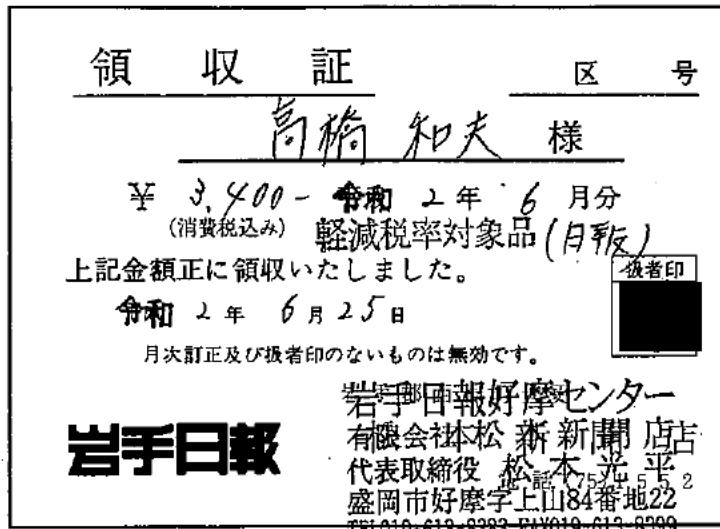 領収証
区 号
高橋 和夫 様
¥ 3,400- 令和 2年 6月分
(消費税込み) 軽減税率対象品(日報)
上記金額正に領収いたしました。
扱者印
令和 2年 6月25日
月次訂正及び扱者印のないものは無効です。
岩手日報好摩センター
岩手日報
代表取締役 松本光平
盛岡市好摩字上山84番地22